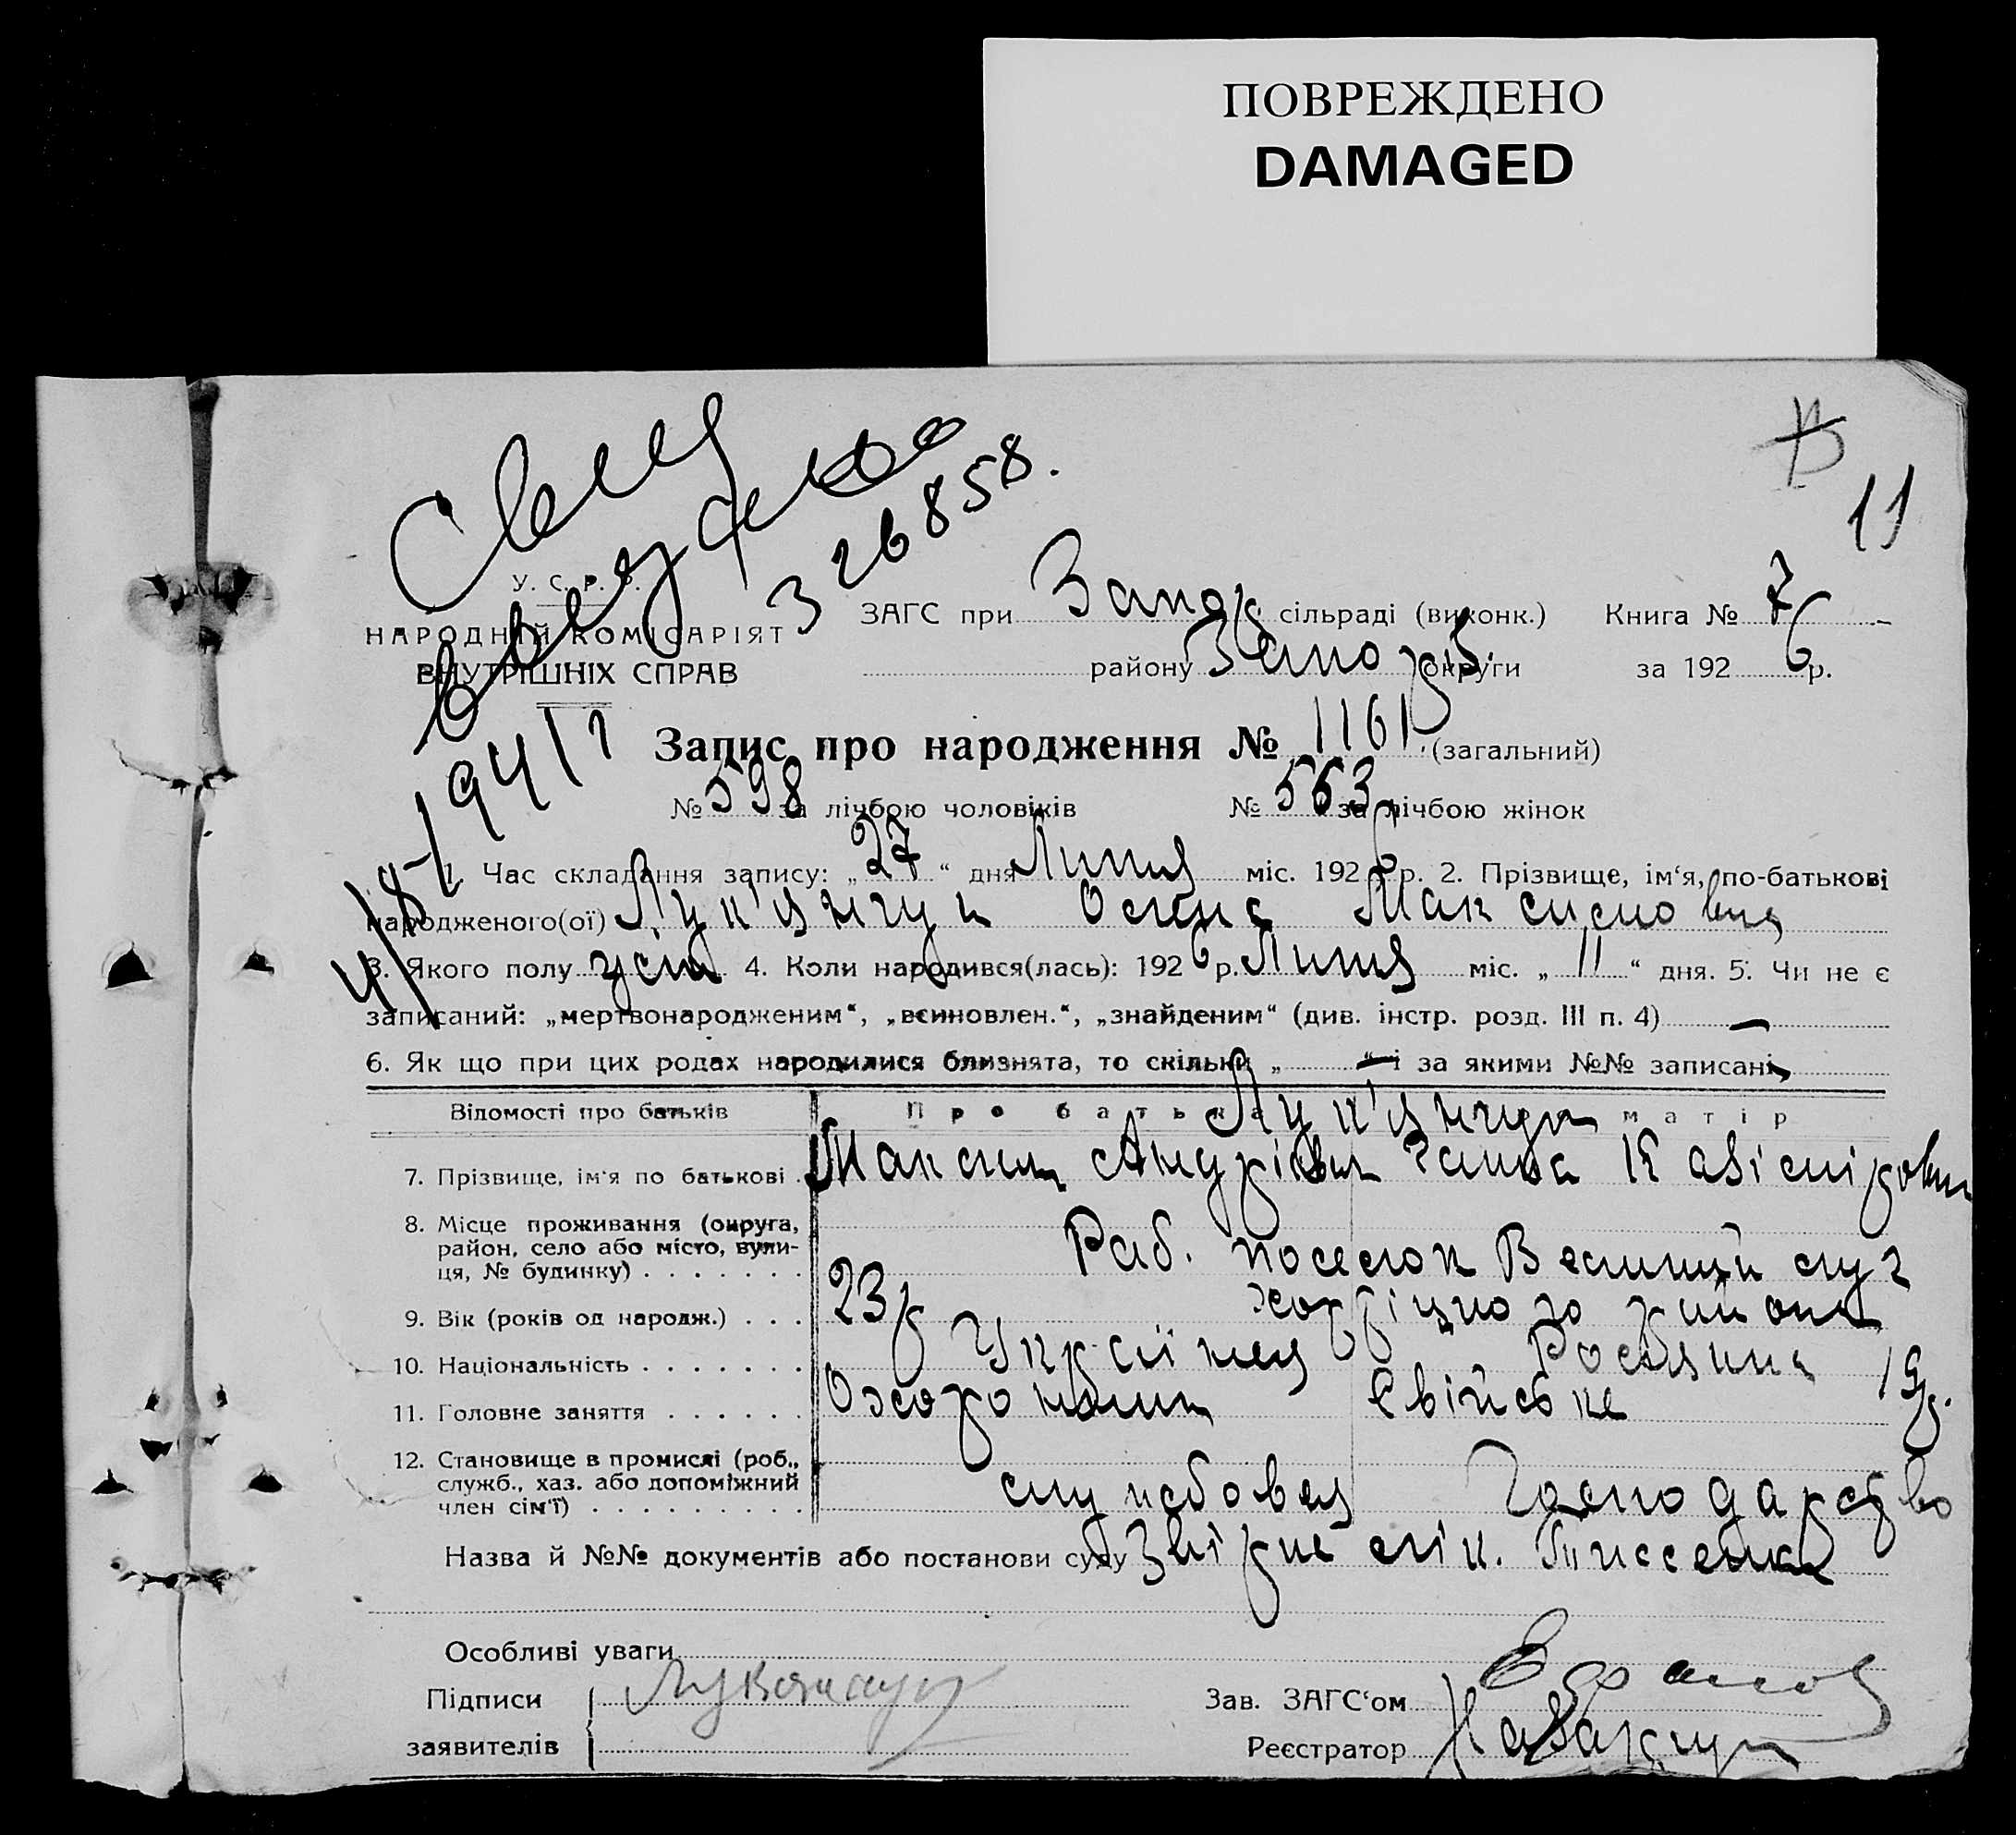 ПОВРЕЖДЕНО
DAMAGED
11
З 26858.
У. С. Р. Р.
НАРОДНІЙ КОМІСАРІЯТ
ВНУТРІШНІХ СПРАВ
1941
ЗАГС при Запор. сільраді (виконк.) Книга № 7
району Запоріз. округи за 1926 р.
Запис про народження № 1161 (загальний)
№ 598 за лічбою чоловіків № 563 за лічбою жінок
1. Час складання запису: „27“ дня Липня міс. 1926 р. 2. Прізвище, ім‘я, по-батькові
народженого(ої) Лук'янчук Максимовна
3. Якого полу жін 4. Коли народився(лась): 1926 р. Липня міс. „11“ дня. 5. Чи не є
записаний: „мертвонародженим“, „всиновлен.“, „знайденим“ (див. інстр. розд. III п. 4) —
6. Як що при цих родах народилися близнята, то скільки „ — “ і за якими №№ записані —
Відомості про батьків Про батька матір
Лук'янчук
7. Прізвище, ім‘я по батькові . Максим Андрієв Ганна Казімировн
8. Місце проживання (округа,
район, село або місто, вули-
ця, № будинку) . . . . . . . Раб. поселок Великий луг
Хортіцького району
9. Вік (років од народж.) . . . 23 р 19 р.
10. Національність . . . . . . . Українец Росіянка
11. Головне заняття . . . . . . Охоронник Свійське
12. Становище в промислі (роб.,
служб., хаз. або допоміжний
член сім‘ї) . . . . . . . . . службовец Господарство
Назва й №№ документів або постанови суду
Особливі уваги
Підписи
заявителів
Зав. ЗАГС‘ом
Реєстратор